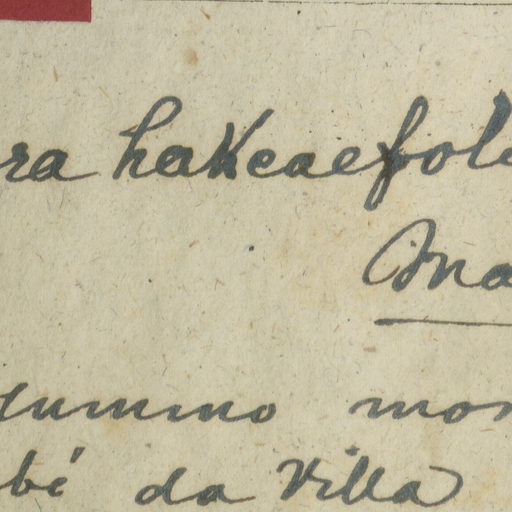 ra hakeaefol
Ma
gummno mon
bé da Villa